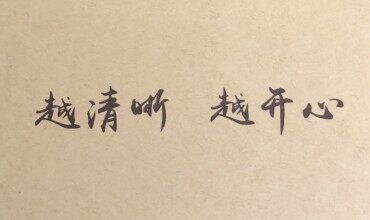 越清晰 越开心